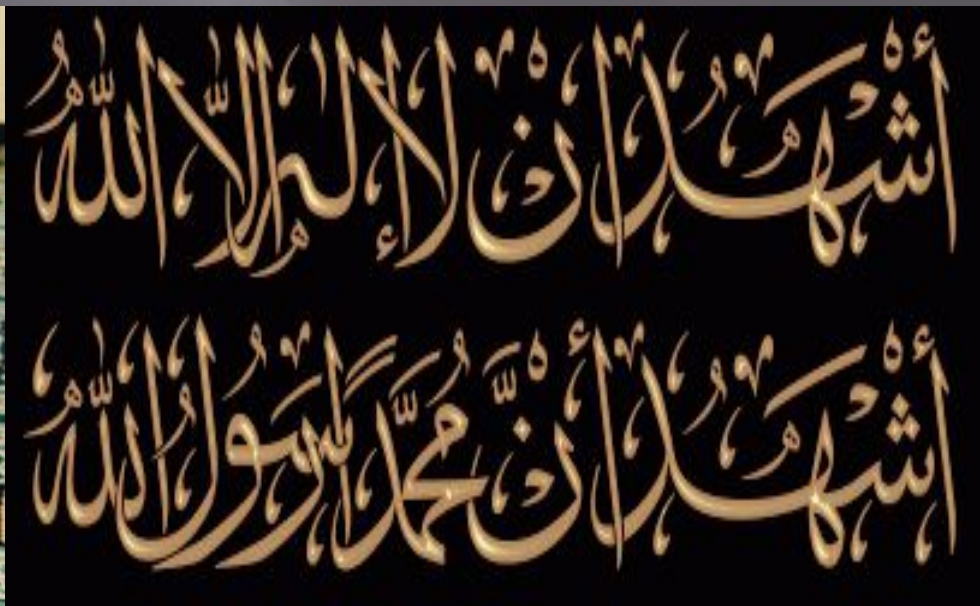 أَشْهَدُ أَنْ لَا إِلٰهَ إِلَّا اللّٰهُ
أَشْهَدُ أَنَّ مُحَمَّدًا رَسُولُ اللّٰهِ